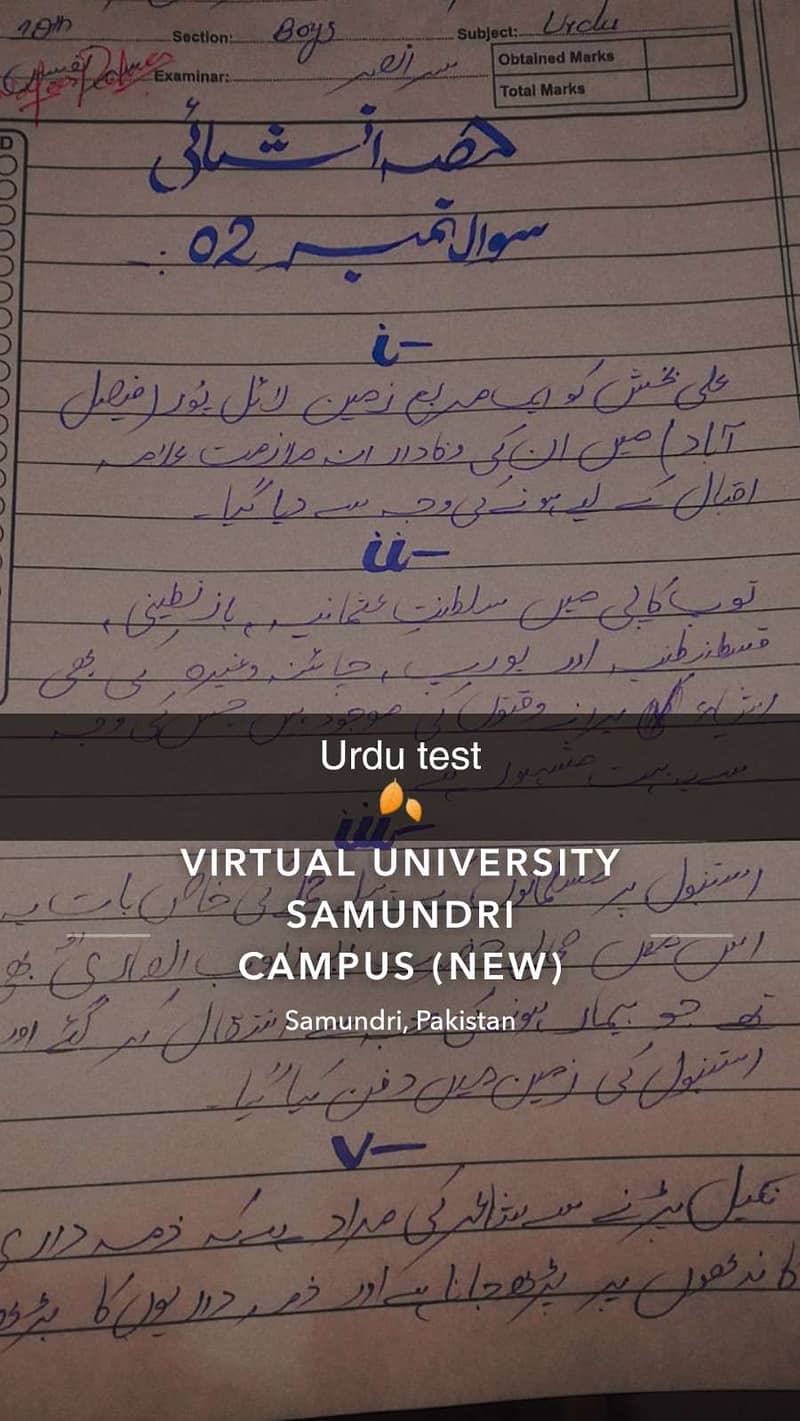 10th Section: Boys Subject: Urdu
Examinar: سر انصر
Obtained Marks
Total Marks
حصہ انشائی
سوال نمبر 02 :-
i-
علی بخش کو ایک مربع زمین لائل پور (فیصل
آباد) میں ان کی وفادار انہ ملازمت علامہ
اقبال کے لیے ہونے کی وجہ سے دیا گیا۔
ii-
توپ کاپی میں سلطنتِ عثمانیہ، بازنطینی،
قسطنطنیہ اور یورپ، چائنہ وغیرہ کی بھی
اشیاء پرانے وقتوں کی موجود ہیں جس کی وجہ
سے یہ بہت مشہور ہے
Urdu test
iii-
VIRTUAL UNIVERSITY
SAMUNDRI
CAMPUS (NEW)
Samundri, Pakistan
استنبول پر مسلمانوں کی خاص بات یہ
اس میں
تھے جو بیمار ہونے کی وجہ سے انتقال کر گئے اور
استنبول کی زمین میں دفن کیا گیا۔
v-
نکیل پڑنے سے شاعر کی مراد ہے کہ ذمہ داری
کاندھوں پر پڑھ جانا ہے اور ذمہ داریوں کا